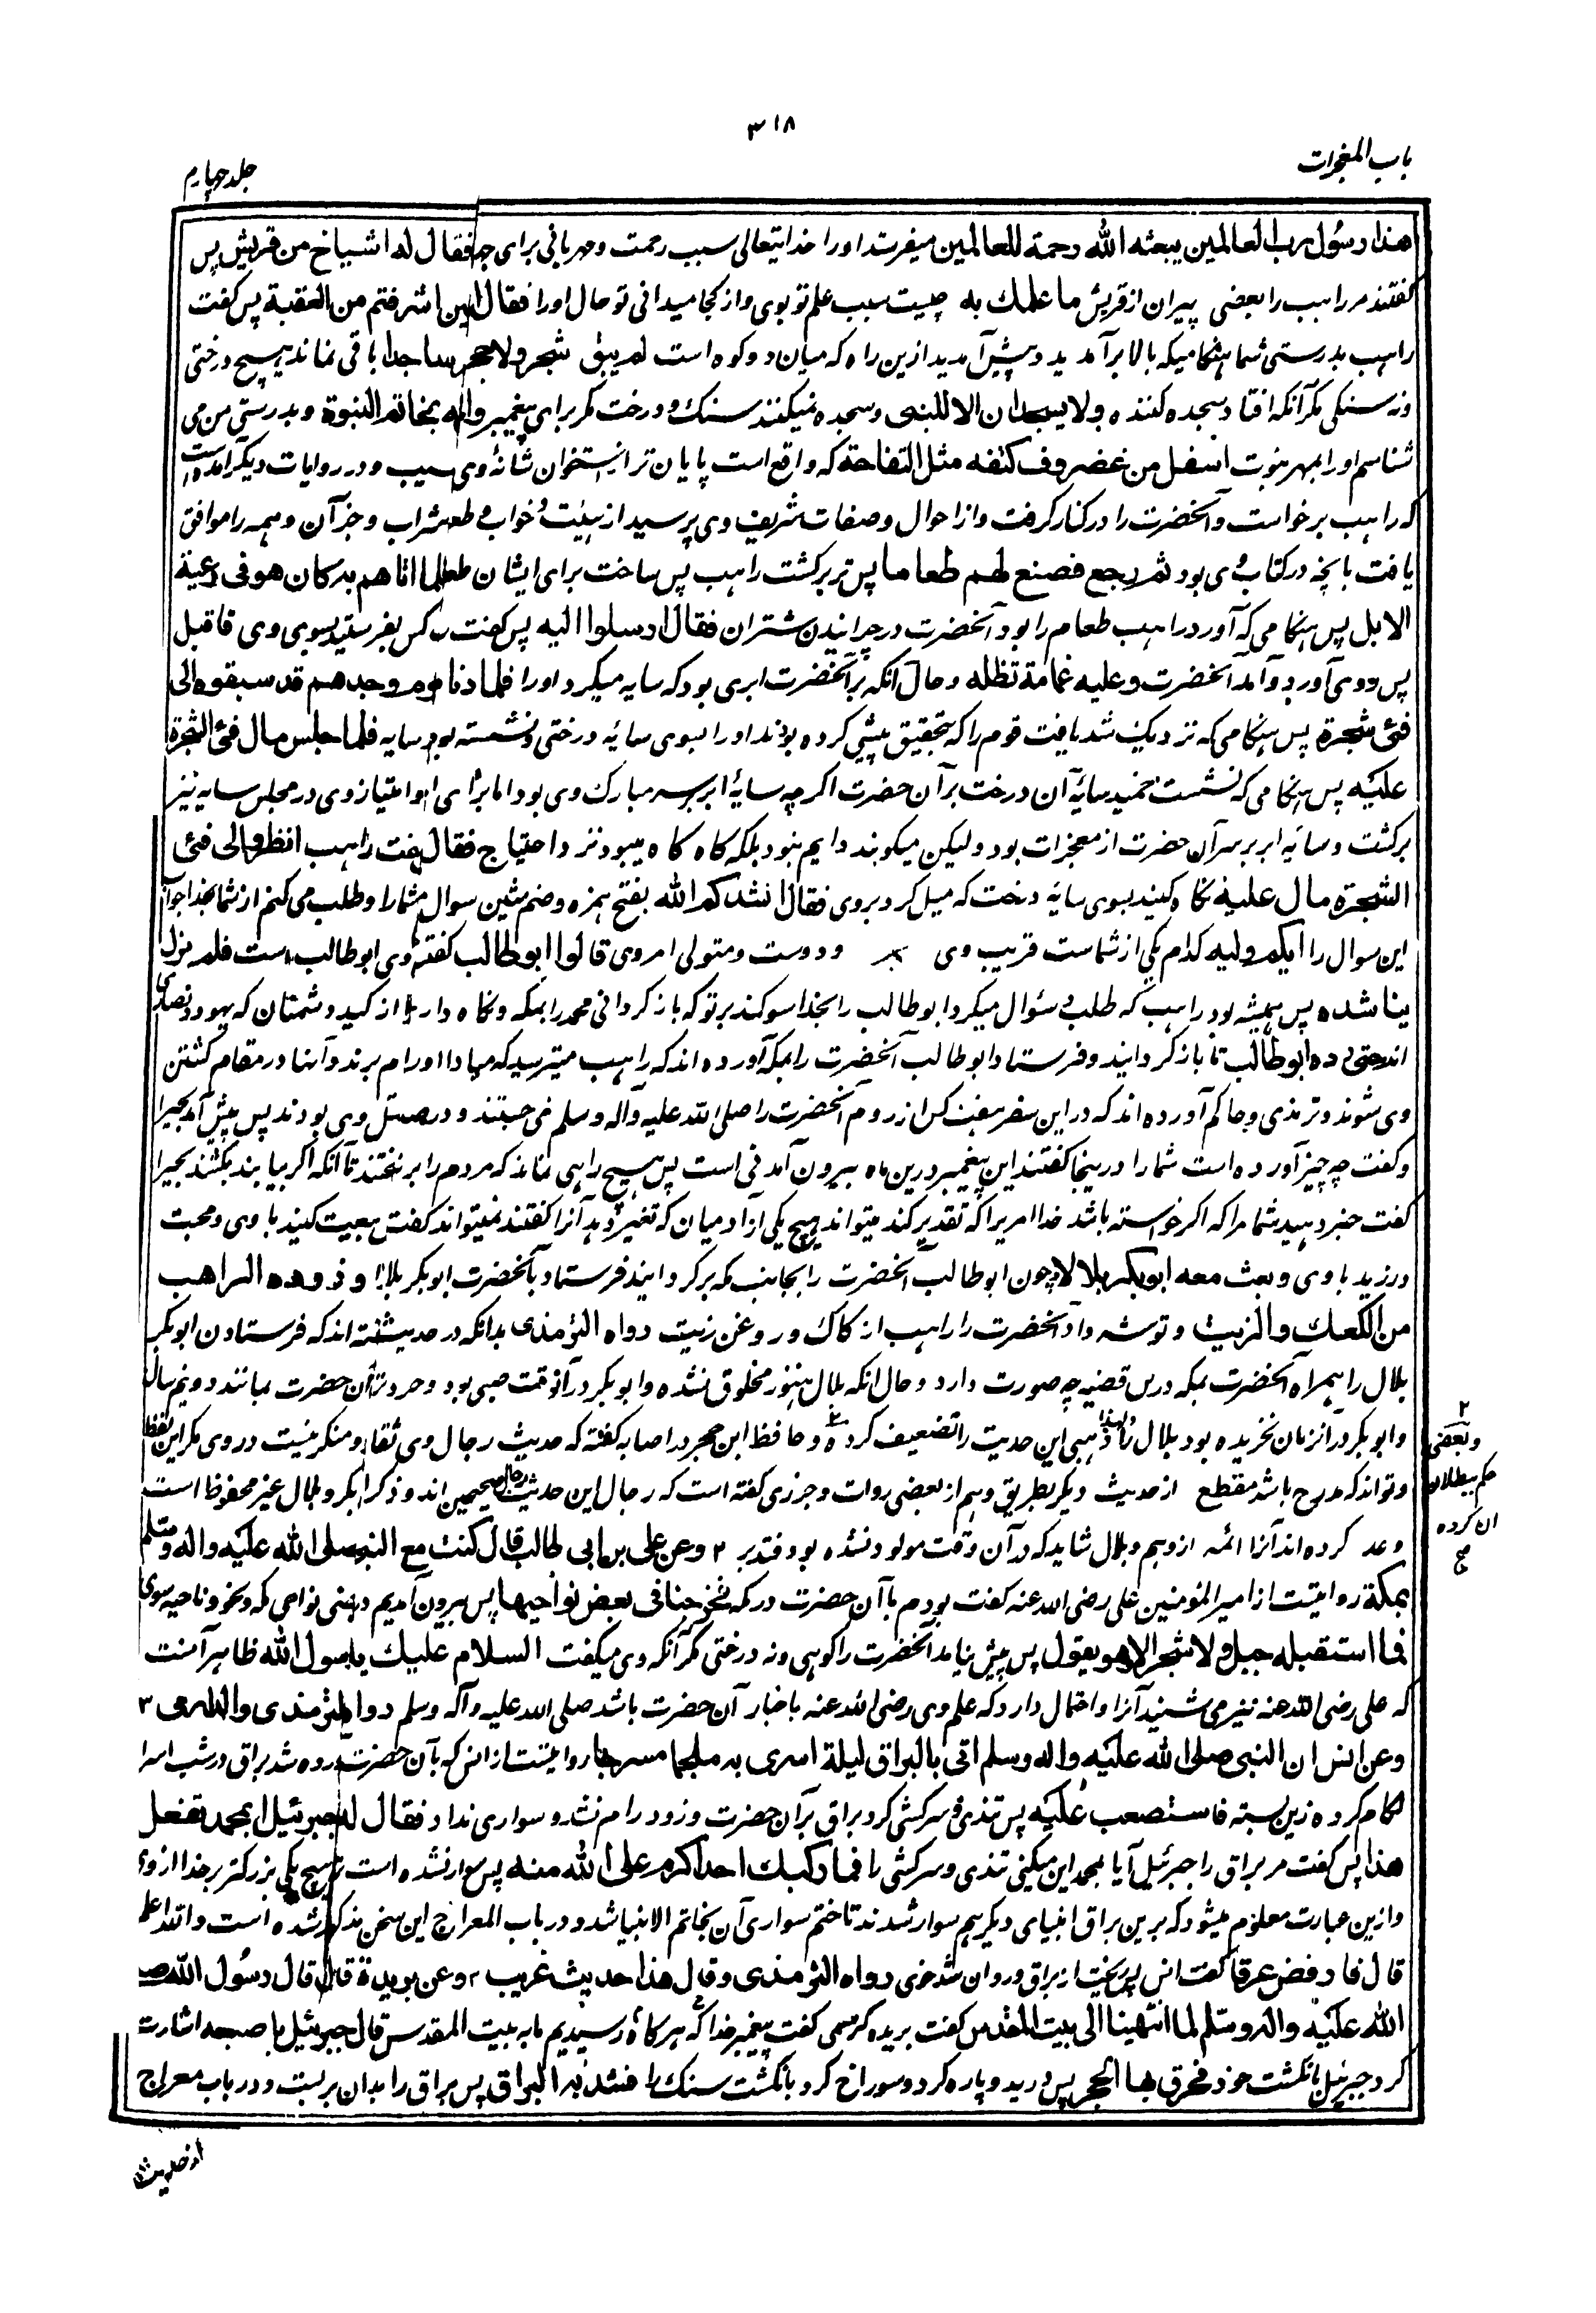 ۳۱۸
باب المعجزات
جلد چهارم
هذا رسول رب العالمین یبعثه الله رحمة للعالمین میفرستد او را خدایتعالی سبب رحمت و مهربانی برای جهـ فقال له اشیاخ من قریش پس
گفتند مر راهب را بعضی پیران از قریش ما علمك به چیست سبب علم تو بوی و از کجا میدانی تو حال او را فقال این اشرفتم من العقبة پس گفت
راهب بدرستی شما هنگامیکه بالا برآمدید و پیش آمدید ازین راه که میان دو کوه است لم یبق شجر ولا حجر ساجدا باقی نماند هیچ درختی
ونه سنگی مگر آنکه افتاد سجده کننده ولا یسجدان الا للنبی و سجده نمیکنند سنگ و درخت مگر برای پیغمبر وانه بخاتم النبوة و بدرستی من می
شناسم او را بمهر نبوت اسفل من غضروف کتفه مثل التفاحة که واقع است پایان تر از استخوان شانۀ وی سیب و در روایات دیگر آمده است
که راهب برخواست و آنحضرت را در کنار گرفت و از احوال و صفات شریف وی پرسید از هیئت و خواب و طعام شراب و جز آن و همه را موافق
یافت بآنچه در کتاب وی بود ثم رجع فصنع لهم طعاما پس تر برگشت راهب پس ساخت برای ایشان طعا فلما اتاهم به کان هو فی رعیة
الابل پس هنگامی که آورد راهب طعام را بود آنحضرت در چرانیدن شتران فقال ارسلوا الیه پس گفت کس بفرستید بسوی وی فاقبل
پس روی آورد و آمد آنحضرت و علیه غمامة تظله و حال آنکه بر آنحضرت ابری بود که سایه میکرد او را فلما دنا من القوم وجدهم قد سبقوه الی
فئ شجرة پس هنگامی که نزدیک شد یافت قوم را که بتحقیق پیشی کرده بودند او را بسوی سایۀ درختی و نشسته بودند بسایه فلما جلس مال فئ الشجرة
علیه پس هنگامی که نشست خمید سایۀ آن درخت بر آن حضرت اگرچه سایۀ ابر بر سر مبارک وی بود اما برای او امتیاز وی در مجلس سایه نیز
برگشت و سایه ابر بر سر آن حضرت از معجزات بود ولیکن میگویند دایم نبود بلکه گاه گاه میبود نزد احتیاج فقال گفت راهب انظروا الی فئ
الشجرة مال علیه نگاه کنید بسوی سایۀ درخت که میل کرد بروی فقال انشدکم الله بفتح همزه و ضم شین سوال مشما را و طلب می کنم از شما بخدا جواب
این سوال را ایکم ولیه کدام یکی از شماست قریب وی و دوست و متولی امر وی قالوا ابوطالب گفتند وی ابوطالب است فلم یزل
یناشده پس همیشه بود راهب که طلب و سئوال میکرد ابوطالب را بخدا سوگند بر تو که باز گردانی محمد را بمکه و نگاه دار او را از کید دشمنان که یهود و نصاری
اند حتی رده ابوطالب تا باز گردانید و فرستاد ابوطالب آنحضرت را بمکه آورده اند که راهب میترسید که مبادا او را بروم برند و آنها در مقام کشتن
وی شوند و ترمذی و حاکم آورده اند که در این سفر هفت کس از روم آنحضرت را صلی الله علیه وآله وسلم می جستند و در صدد قتل وی بودند پس پیش آمد بحیرا
و گفت چه چیز آورده است شما را درینجا گفتند این پیغمبر درین ماه بیرون آمدنی است پس هیچ راهی نماند که مردم را بر نگماشتند تا آنکه اگر بیابند بکشند بحیرا
گفت خبر دهید شما مرا که اگر خواسته باشد خدا امریرا که تقدیر کند میتواند هیچ یکی از آدمیان که تغیر دهد آنرا گفتند نمیتواند گفت بیعت کنید با وی و محبت
ورزید با وی و بعث معه ابوبکر بلالا و چون ابوطالب آنحضرت را بجانب مکه برگردانید فرستاد با آنحضرت ابوبکر بلال را و زوده الراهب
من الکعك والزیت و توشه داد آنحضرت را راهب از کاک و روغن زیت رواه الترمذی بدانکه در حدیث گفته اند که فرستادن ابوبکر
بلال را همراه آنحضرت بمکه درین قضیه چه صورت دارد و حال آنکه بلال هنوز مخلوق نشده و ابوبکر در آنوقت صبی بود و خردتر از آن حضرت بمانند دو نیم سال
و ابوبکر در آنزمان نخریده بود بلال را و لهذا ذهبی این حدیث را تضعیف کرده ۲ و حافظ ابن حجر در اصابه گفته که حدیث رجال وی ثقات و منکر نیست در وی مگر این لفظ
و تواند که مدرج باشد مقتطع از حدیث دیگر بطریق وهم از بعضی روات و جزری گفته است که رجال این حدیث رجال صحیحین اند و ذکر ابوبکر و بلال غیر محفوظ است
و عد کرده اند آنرا ائمه از وهم و بلال شاید که در آن وقت مولود نشده بود فتدبر ۲ وعن علی بن ابی طالب قال کنت مع النبی صلی الله علیه واله وسلم
بمکة روایتست از امیر المؤمنین علی رضی الله عنه گفت بودم با آن حضرت در مکه فخرجنا فی بعض نواحیها پس بیرون آمدیم در بعضی نواحی مکه و نحو و ناحیه سوی
فما استقبله جبل ولا شجر الا وهو یقول پس پیش نیامد آنحضرت را کوهی و نه درختی مگر آنکه وی میگفت السلام علیك یا رسول الله ظاهر آنست
که علی رضی الله عنه نیز می شنید آنرا و احتمال دارد که علم وی رضی الله عنه باخبار آن حضرت باشد صلی الله علیه وآله وسلم رواه الترمذی والدارمی ۳
وعن انس ان النبی صلی الله علیه واله وسلم اتی بالبراق لیلة اسری به ملجما مسرجا روایتست از انس که بآن حضرت آورده شد براق در شب اسرا
لگام کرده زین بسته فاستصعب علیه پس تندی و سرکشی کرد براق بر آن حضرت و زود رام نشد و سواری نداد فقال له جبرئیل ابمحمد تفعل
هذا پس گفت مر براق را جبرئیل آیا بمحمد این میکنی تندی و سرکشی را فما رکبك احد اکرم علی الله منه پس سوار نشده است ترا هیچ یکی بزرگتر بر خدا از وی
و ازین عبارت معلوم میشود که برین براق انبیای دیگر هم سوار شدند تا ختم سواری آن بخاتم الانبیا شد و در باب المعراج این سخن مذکور شده است والله اعلم
قال فارفض عرقا گفت انس پس ریخت از براق و روان شد خوی رواه الترمذی وقال هذا حدیث غریب ۴ وعن بریدة قال قال رسول الله صلی
الله علیه واله وسلم لما انتهینا الی بیت المقدس گفت بریده که میگفت پیغمبر خدا که هرگاه رسیدیم ما به بیت المقدس قال جبرئیل باصبعه اشارت
کرد جبرئیل بانگشت خود فخرق بها الحجر پس درید و پاره کرد و سوراخ کرد بانگشت سنگ را فشد به البراق پس براق را بدان بربست و در باب معراج
۲
و بعضی
حکم ببطلان
ان کرده
صح
از حدیث